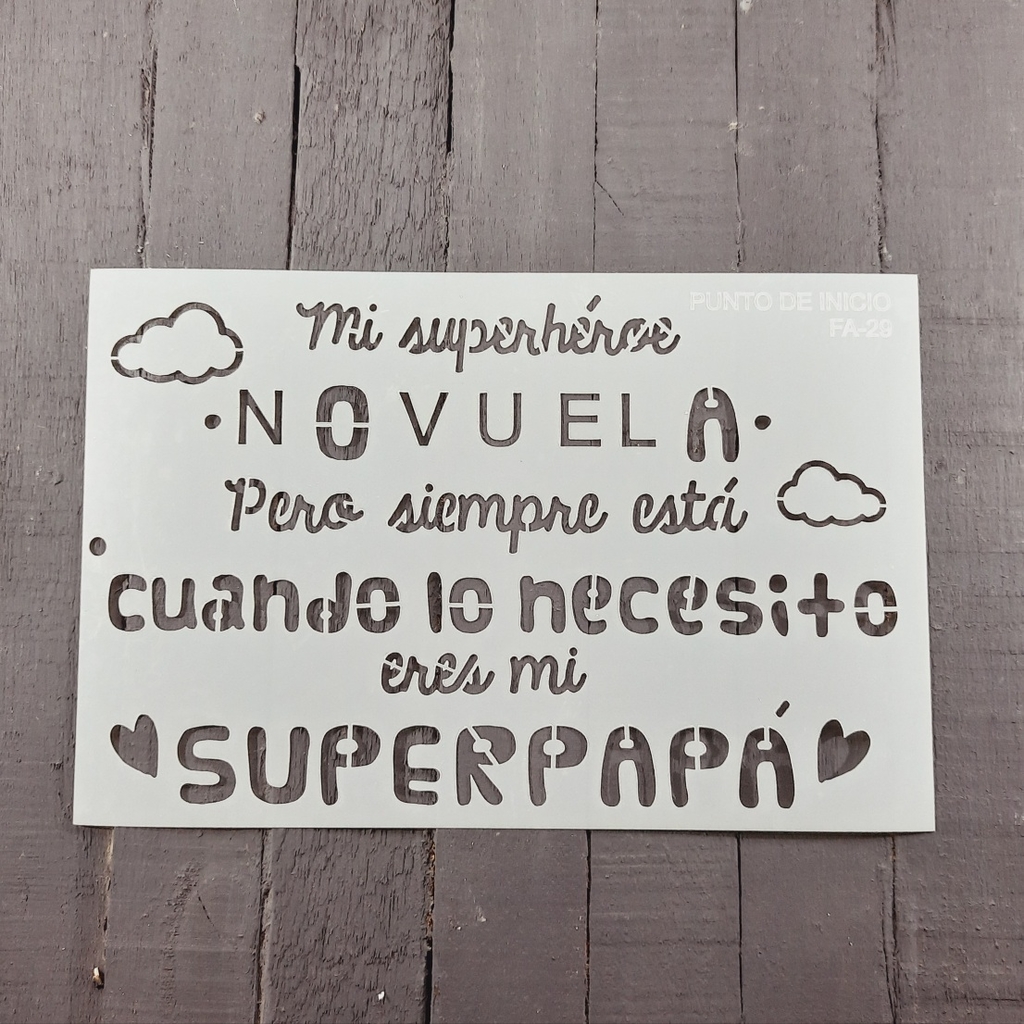 PUNTO DE INICIO
FA-29
Mi superhéroe
NO VUELA
Pero siempre está
cuando lo necesito
eres mi
SUPERPAPÁ